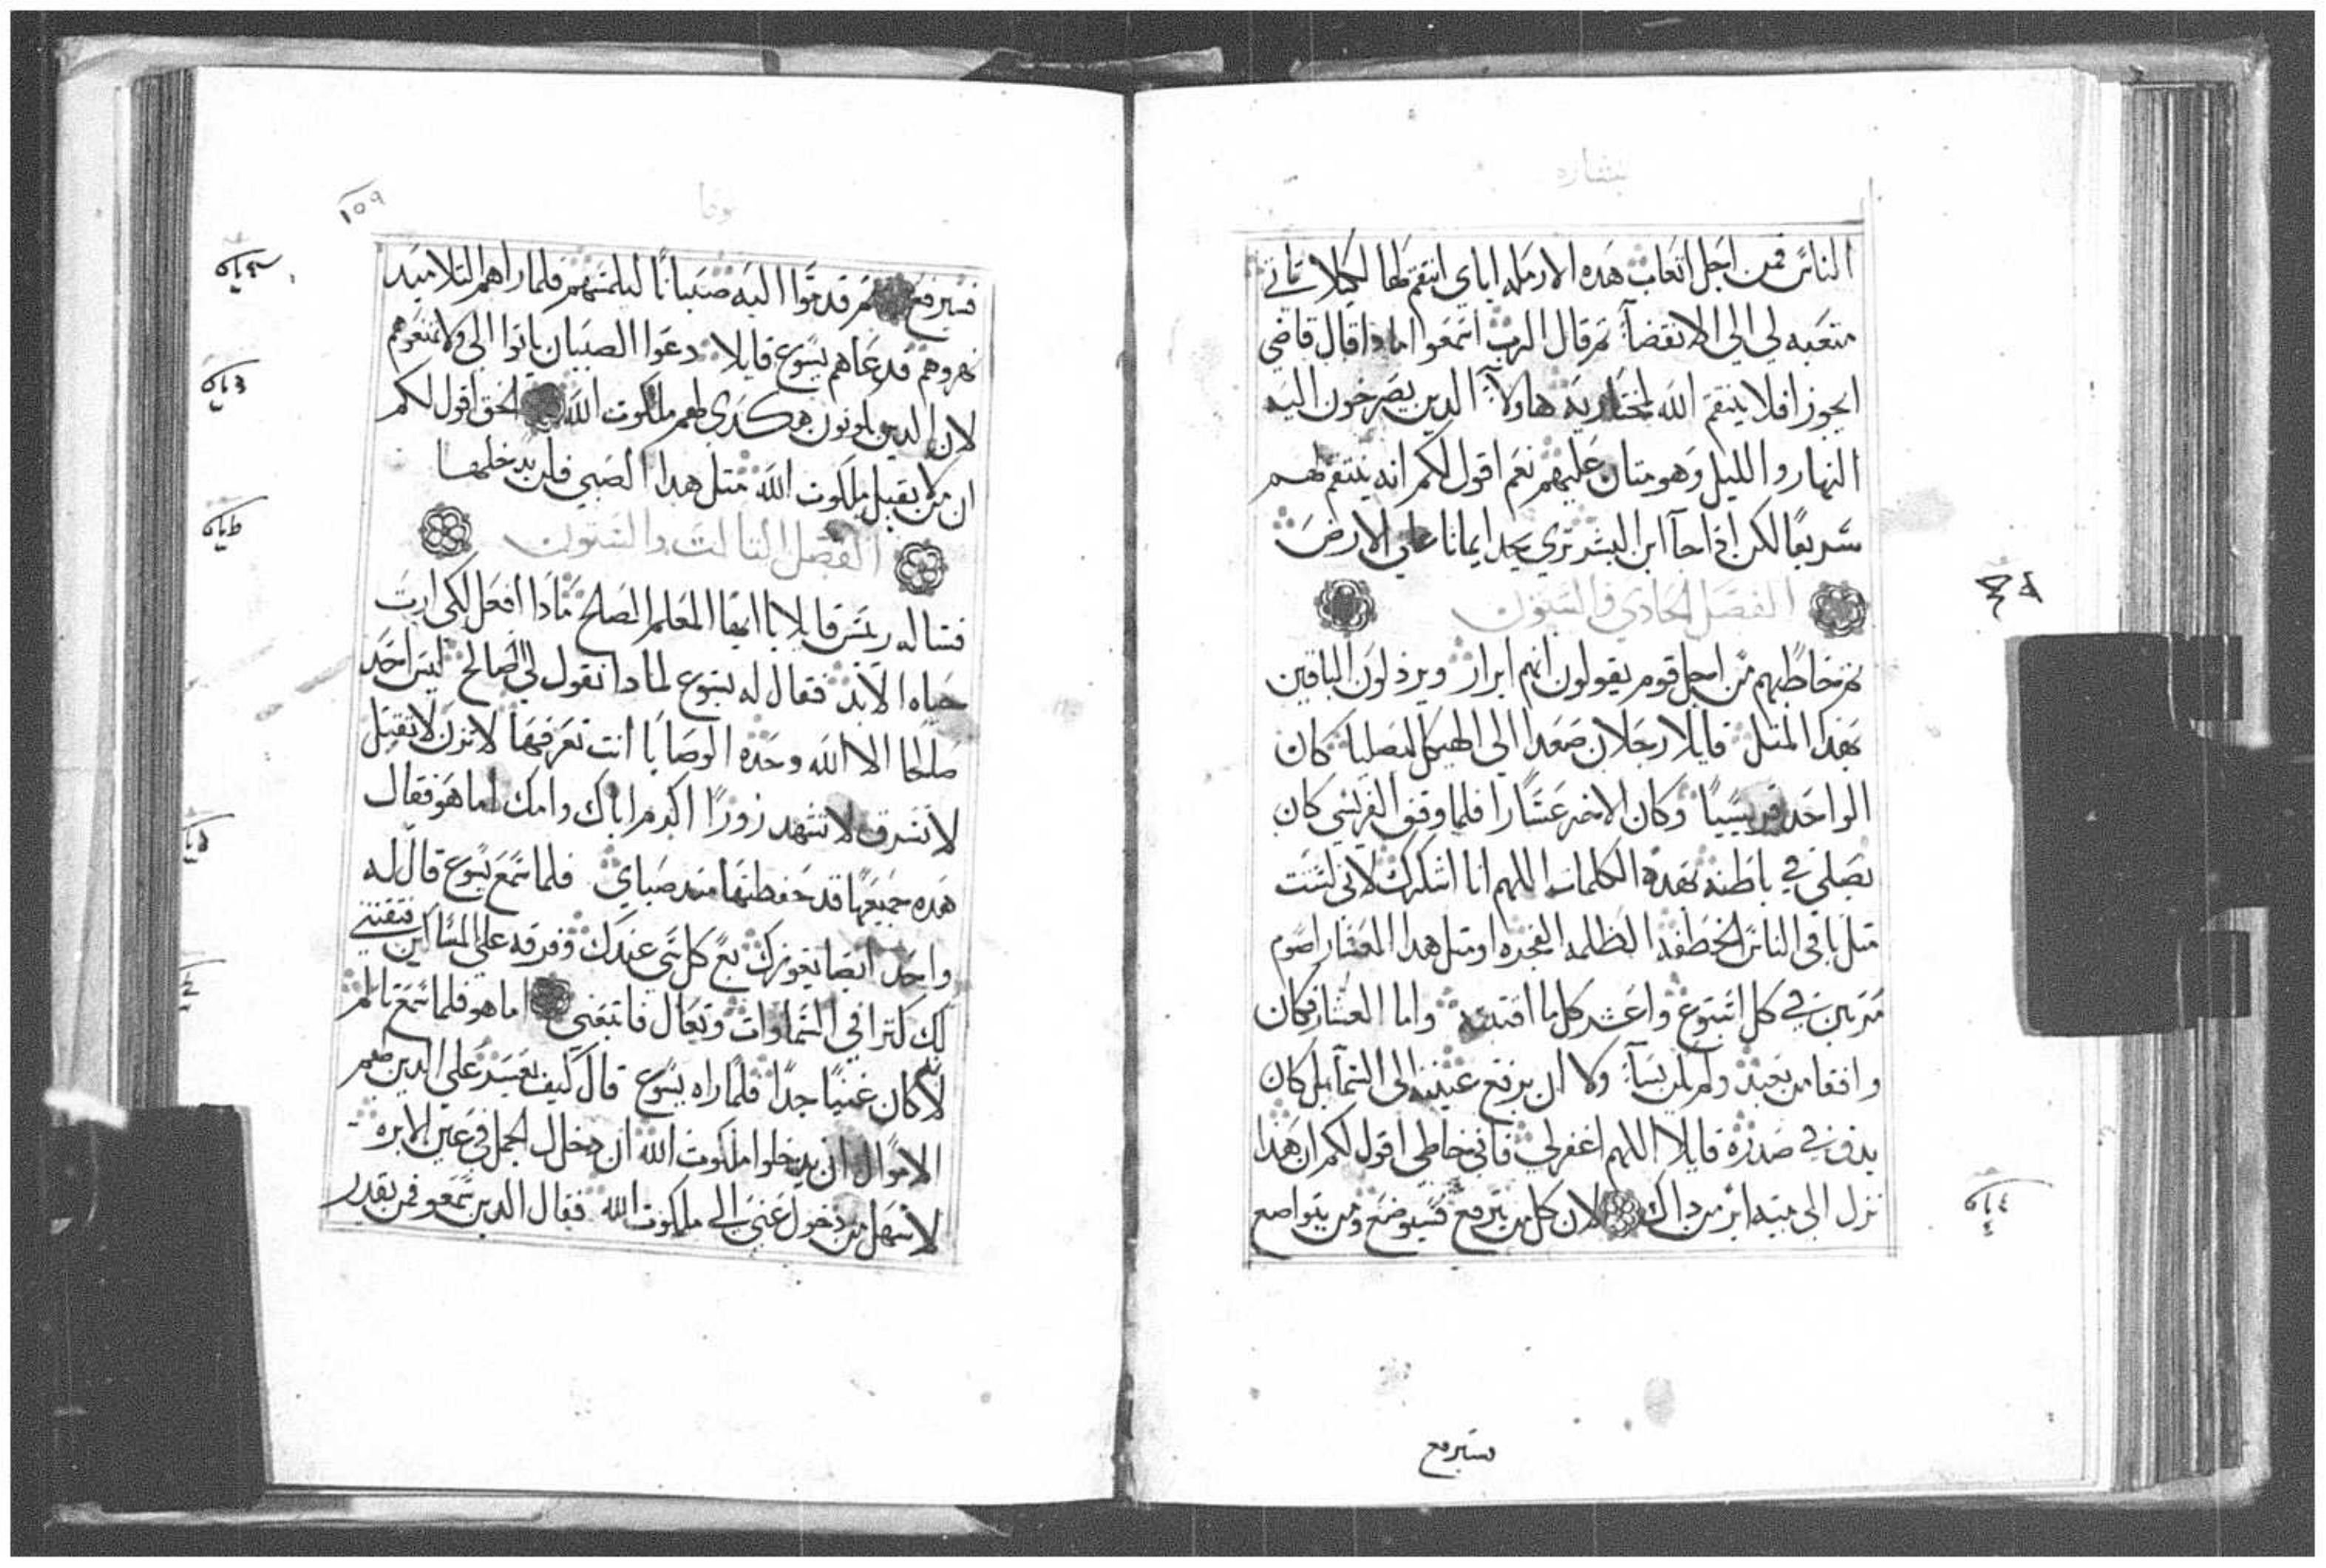 بشاره
الناس فمن اجل اتعاب هده الارمله اياي انتقم لها لكيلا تاتي
متعبه لي الى الانقضآ تم قال الرب اسمعوا مادا قال قاضي
الجور افلا ينتقم الله لمختاريه هاولآ الدين يصرخون اليه
النهار والليل وهو متان عليهم نعم اقول لكم انه ينتقم لهم
سريعا لكن اذا جآ ابن البشر تري يجد ايمانا علي الارض
الفصل الحادي والستون
تم خاطبهم من اجل قوم يقولون انهم ابرار ويرذلون الباقين
بهذا المتل قايلا رجلان صعدا الى الهيكل ليصليا كان
الواحد فريسيا وكان الاخر عشارا فلما وقف الفريسي كان
يصلي في باطنه بهده الكلمات اللهم انا اشكرك لاني لست
متل باقي الناس الخطفه الظلمه الفجره او متل هدا العشار اصوم
مرتين في كل اسبوع واعشر كل ما اقتنيه واما العشار فكان
واقفا من بعيد ولم يسآ ولا ان يرفع عينيه الى السمآ بل كان
يدق في صدره قايلا اللهم اغفر لي فاني خاطي اقول لكم ان هذا
نزل الى بيته ابر من داك لان كل من يترفع فسيوضع ومن يتواضع
سيرفع
لوقا
١٥٩
فسيرفع تم قدموا اليه صبيانا ليلمسهم فلما راهم التلاميد
نهروهم فدعاهم يسوع قايلا دعوا الصبيان ياتوا الي ولا تمنعوهم
لان الدين يكونون هكدى لهم ملكوت الله الحق اقول لكم
ان من لا يقبل ملكوت الله متل هدا الصبي فلن يدخلها
الفصل التالت والستون
فساله ريس قايلا يا ايها المعلم الصالح مادا افعل لكي ارت
حياه الابد فقال له يسوع لمادا تقول لي صالح ليس احد
صالحا الا الله وحده الوصايا انت تعرفها لا تزن لا تقتل
لا تسرق لا تشهد زورا اكرم اباك وامك اما هو فقال
هده جميعها قد حفظتها مند صباي فلما سمع يسوع قال له
واحد ايضا يعوزك بع كل شي عندك وفرقه علي المساكين فتقتني
لك كنزا في السماوات وتعال فاتبعني اما هو فلما سمع تالم
لانه كان غنيا جدا فلما راه يسوع قال كيف يعسر علي الدين معهم
الاموال ان يدخلوا ملكوت الله ان دخال الجمل في عين الابره
لاسهل من دخول غني الى ملكوت الله فقال الدين سمعو فمن يقدر